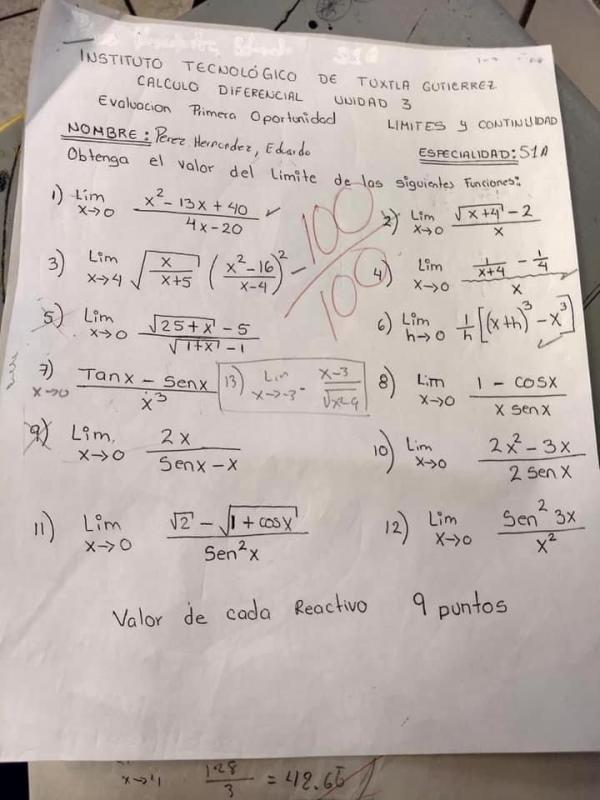 51A
INSTITUTO TECNOLÓGICO DE TUXTLA GUTIERREZ
CALCULO DIFERENCIAL UNIDAD 3
Evaluacion Primera Oportunidad LIMITES y CONTINUIDAD
NOMBRE: Perez Hernandez, Eduardo ESPECIALIDAD: S1A
Obtenga el valor del Limite de las siguientes Funciones:
1) Lim x→0 (x² - 13x + 40)/(4x - 20)
2) Lim x→0 (√(x+4) - 2)/x
100/100
3) Lim x→4 √(x/(x+5)) ((x² - 16)/(x-4))²
4) Lim x→0 (1/(x+4) - 1/4)/x
5) Lim x→0 (√(25+x) - 5)/(√(1+x) - 1)
6) Lim h→0 1/h [(x+h)³ - x³]
7) x→0 (Tanx - Senx)/x³
13) Lim x→-3⁻ (x-3)/√(x²-9)
8) Lim x→0 (1 - cosx)/(x senx)
9) Lim. x→0 2x/(Senx - x)
10) Lim x→0 (2x² - 3x)/(2 Sen x)
11) Lim x→0 (√2 - √(1 + cosx))/(Sen²x)
12) Lim x→0 (Sen² 3x)/x²
Valor de cada Reactivo 9 puntos
x→4 128/3 = 42.66